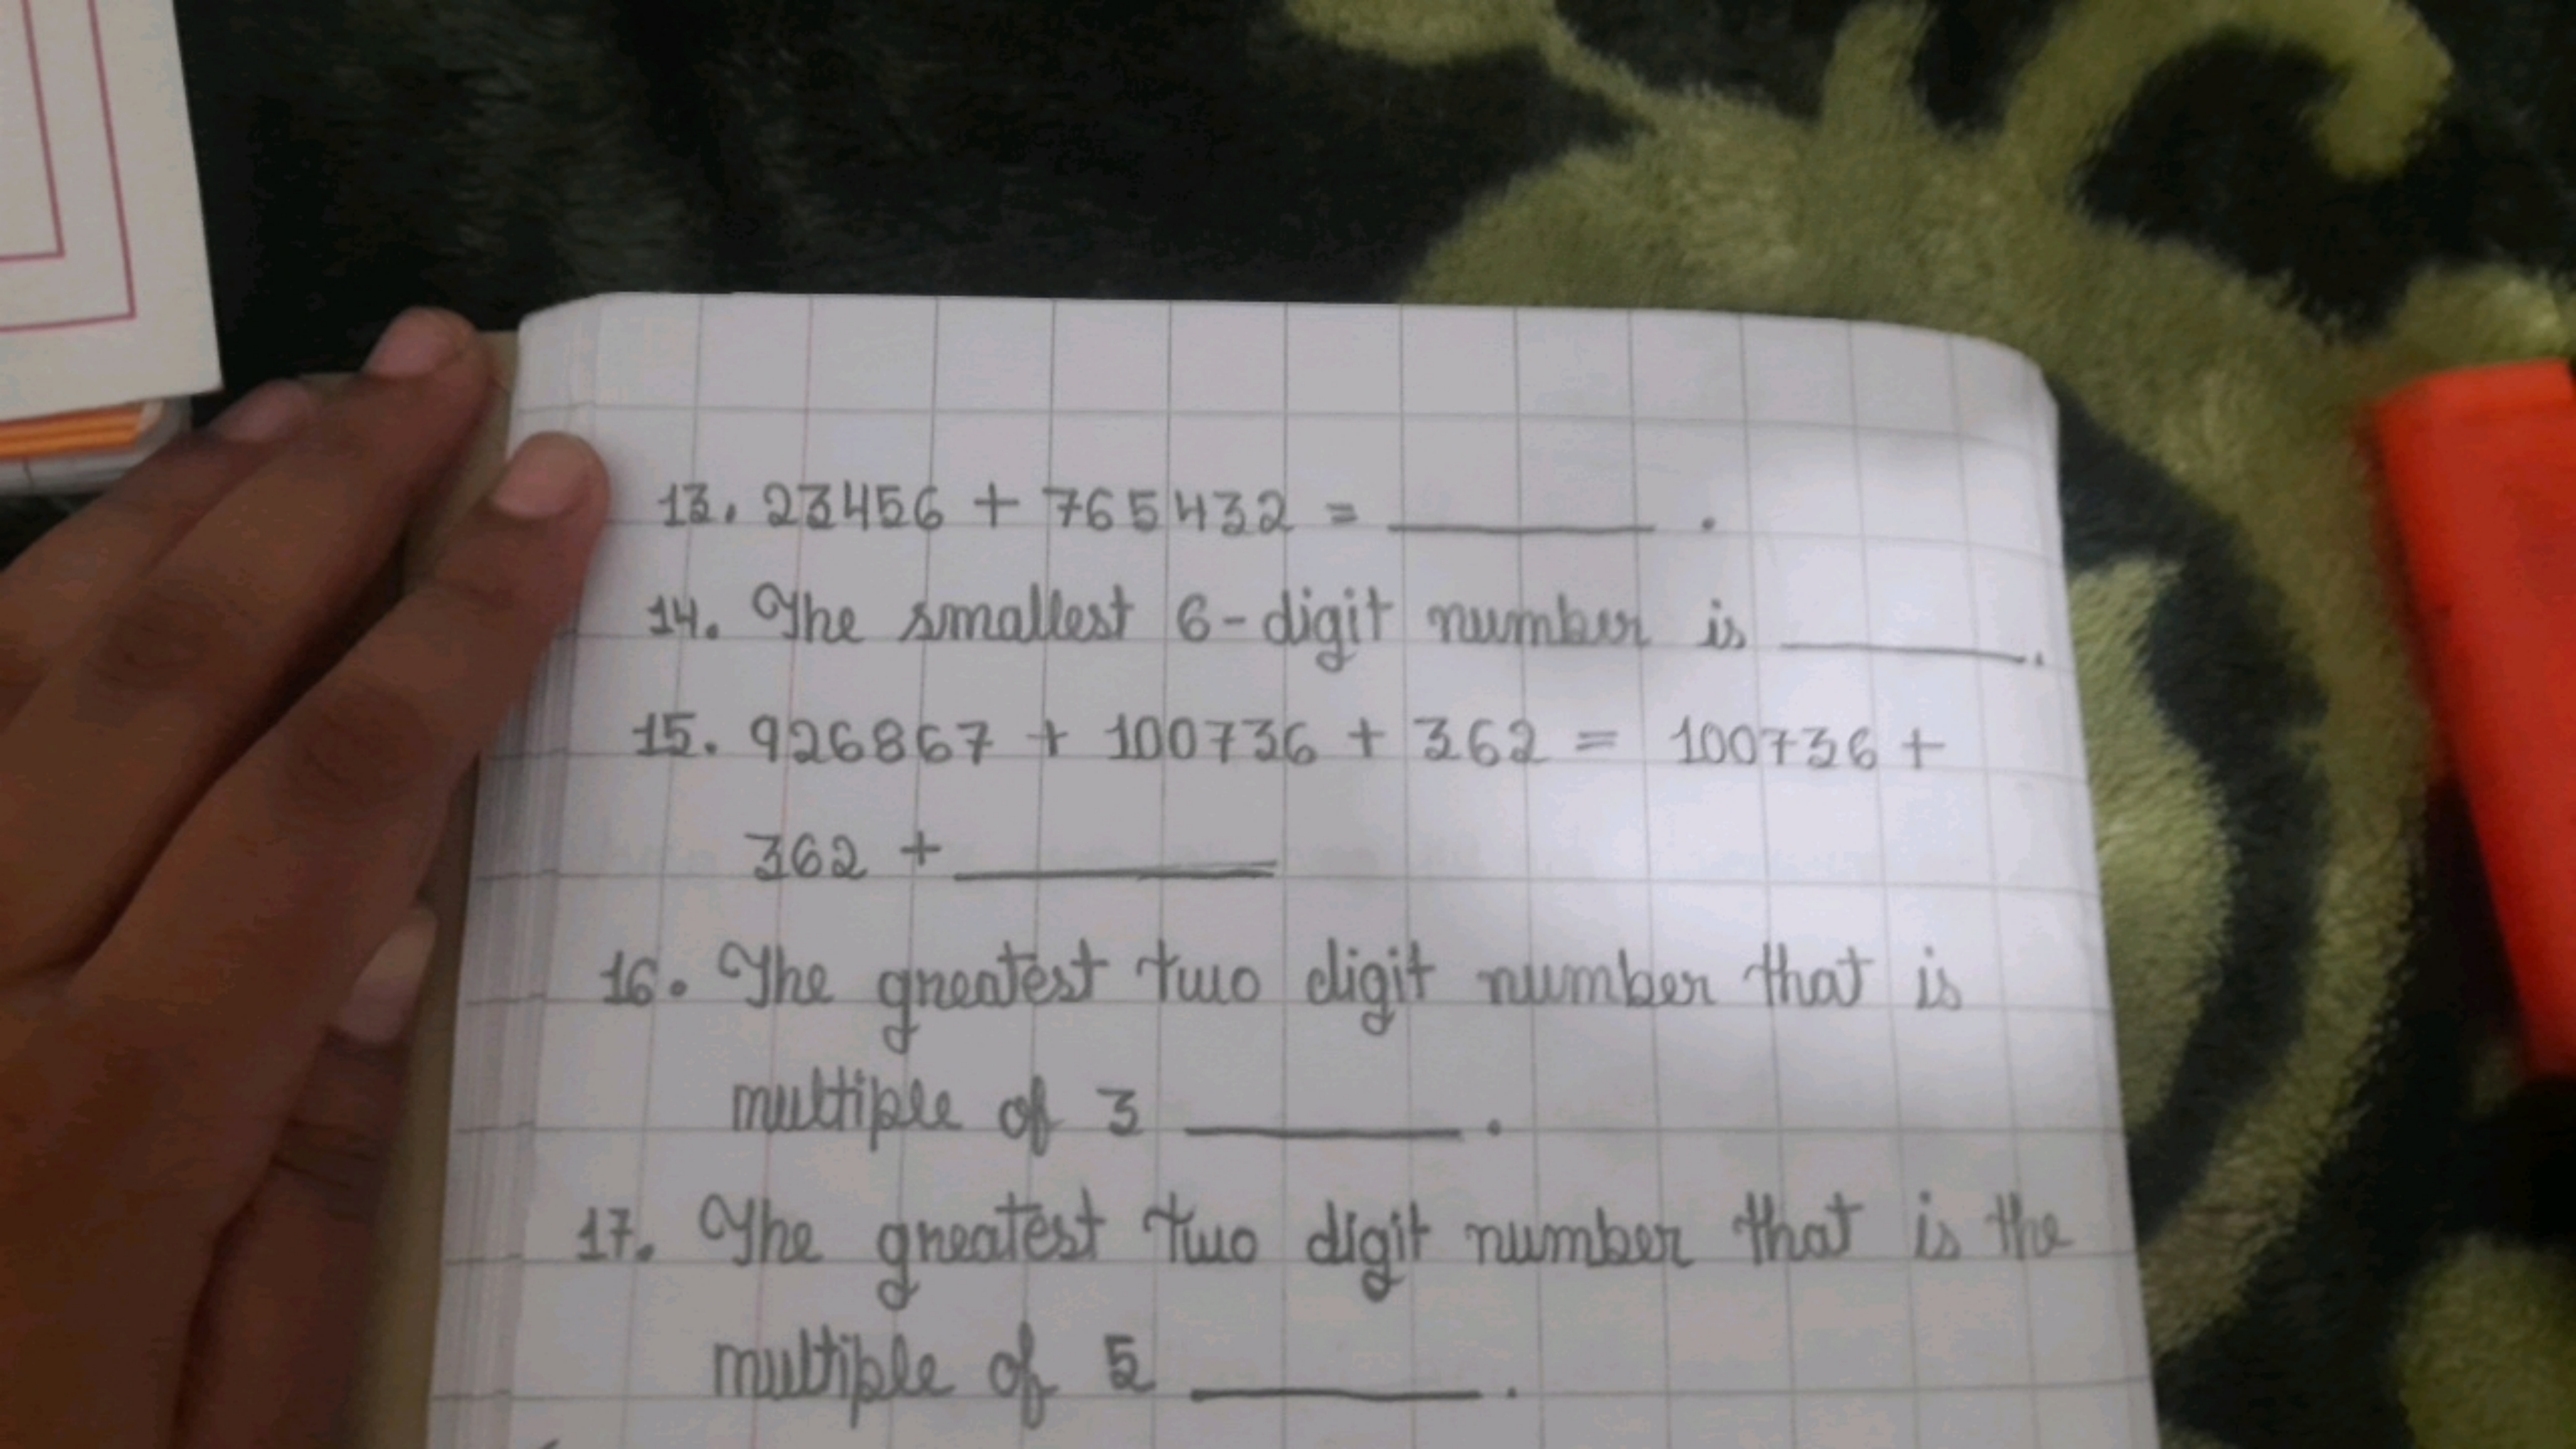 13. 23456 + 765432 = ________ .
14. The smallest 6-digit number is ________.
15. 926867 + 100736 + 362 = 100736 +
362 + ________
16. The greatest two digit number that is
multiple of 3 ________ .
17. The greatest two digit number that is the
multiple of 5 ________ .